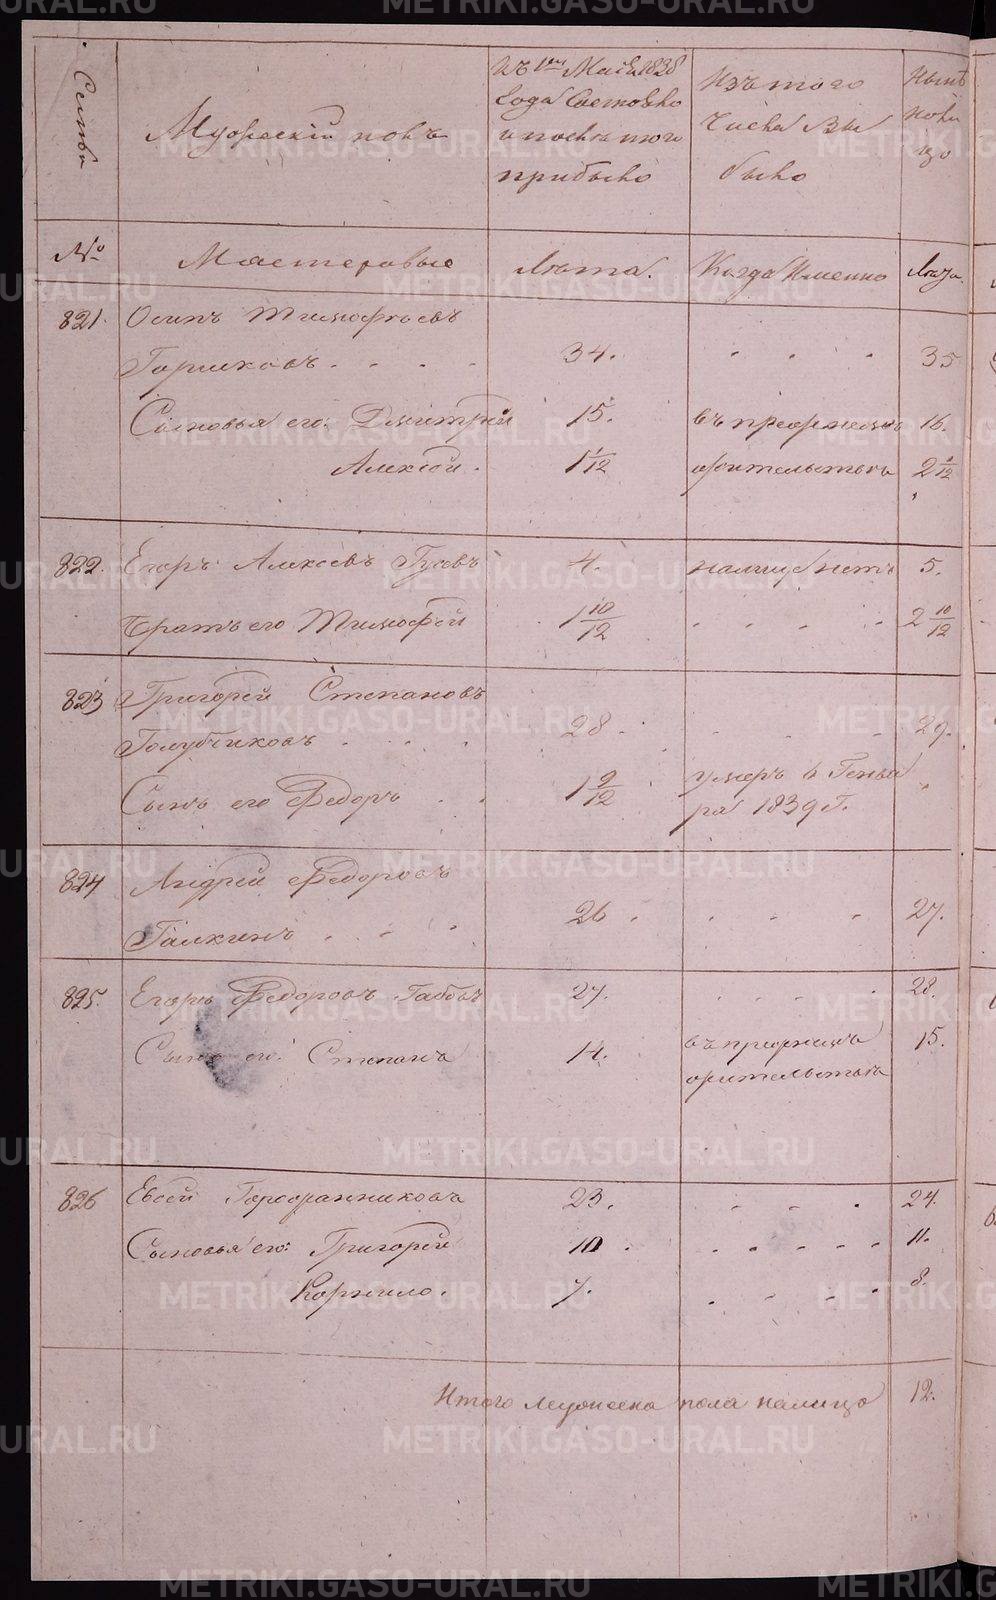 Семьи
Мужескій полъ
Къ 1му Маія 1838
года Състояло
и послѣ того
прибыло
Изъ того
Числа Вы
было
Нынѣ
на ли
цо
№
Мастеровые
Лѣта.
Когда Именно
Лѣта.
821. Осипъ Тимофѣевъ
Горшковъ . . . . 34. . . . 35
Сыновья его: Дмитрій 15. въ прорѣшит 16.
Алексѣй. 1 1/12 2 1/12
822. Егоръ Алексѣевъ Гусевъ 4. налицо нетъ 5.
Братъ его Тимофѣй 1 10/12 . . . . 2 10/12
823 Григорей Степановъ
Голубчиковъ . . . . 28 . . . . 29.
Сынъ его Федоръ . . 1 9/12 умеръ 6 Генва "
ря 1839 г.
824 Андрей Федоровъ
Галкинъ . . . 26 . . . . 27.
825. Егоръ Федоровъ Габовъ 27. . . . . 28.
Сынъ его: Степанъ 14. 15.
826 Евсей Горофанниковъ 23. . . . 24.
Сыновья его: Григорей 10 . . . . . . 11.
Корнило. 7. . . . . 8.
Итого мужеска пола налицо 12.
METRIKI.GASO-URAL.RU